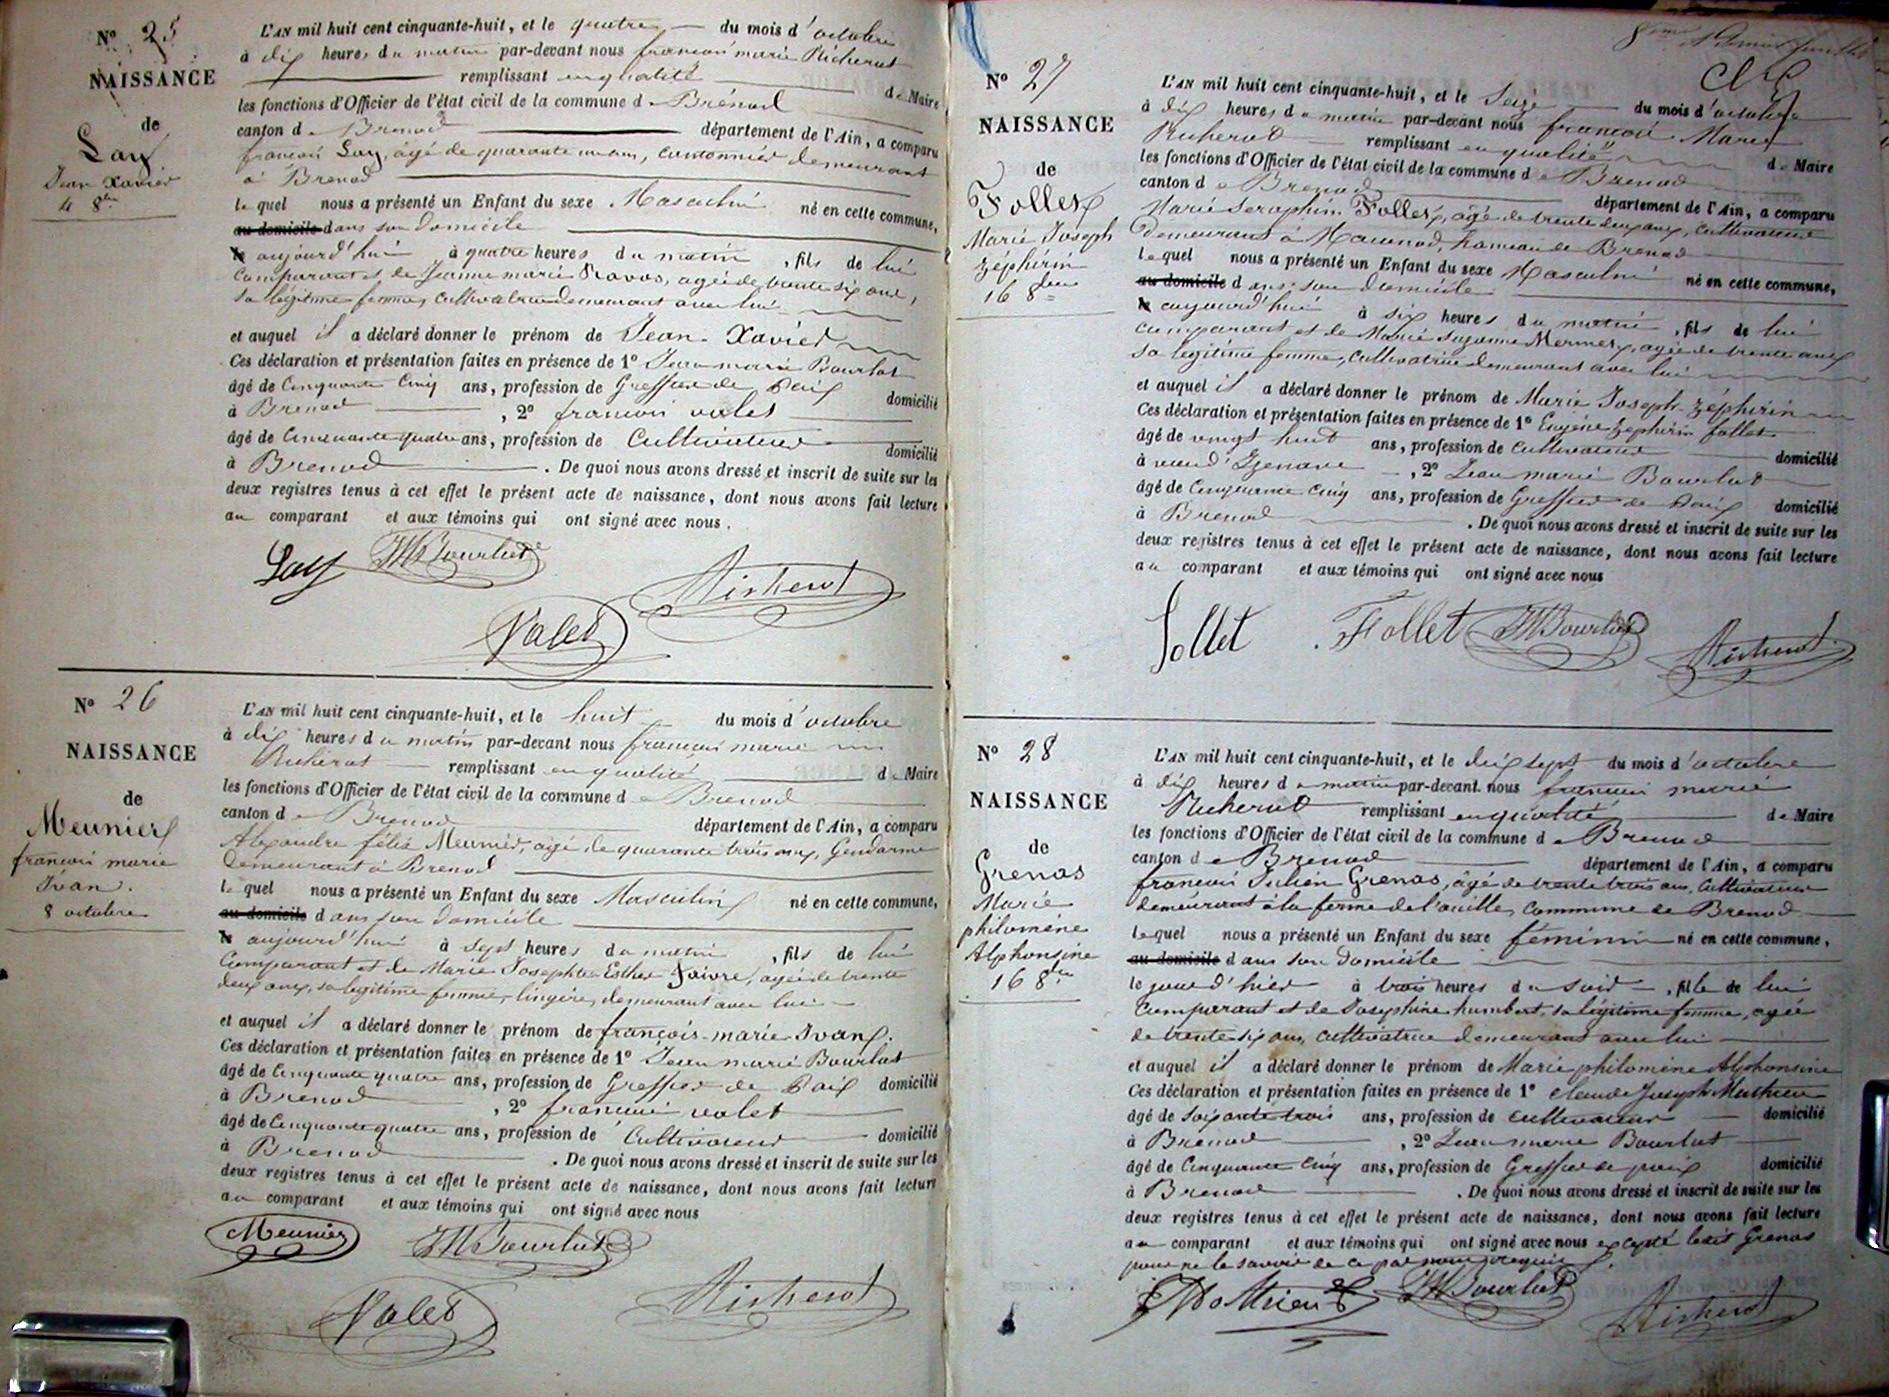 N° 25
NAISSANCE
de
Lay
Jean Xavier
4 8bre
L'AN mil huit cent cinquante-huit, et le quatre du mois d'octobre
à dix heures du matin par-devant nous françois marie Richerot
remplissant en qualité de Maire
les fonctions d'Officier de l'état civil de la commune de Brénod
canton de Brenod département de l'Ain, a comparu
françois Lay, âgé de quarante un ans, cantonnier demeurant
à Brenod
lequel nous a présenté un Enfant du sexe Masculin né en cette commune,
au domicile dans son domicile
le aujourd'hui à quatre heures du matin, fils de lui
comparant et de Jeanne marie Savos, agée de trente six ans,
sa légitime femme, cultivatrice demeurant avec lui
et auquel il a déclaré donner le prénom de Jean Xavier
Ces déclaration et présentation faites en présence de 1° Jean marie Bourlot
âgé de Cinquante cinq ans, profession de Greffier de Paix domicilié
à Brenod, 2° francois valet
âgé de Cinquante quatre ans, profession de Cultivateur domicilié
à Brenod. De quoi nous avons dressé et inscrit de suite sur les
deux registres tenus à cet effet le présent acte de naissance, dont nous avons fait lecture
au comparant et aux témoins qui ont signé avec nous.
Lay JM Bourlot
Richerot
Valet
N° 26
NAISSANCE
de
Meunier
francois marie
Ivan.
8 octobre
L'AN mil huit cent cinquante-huit, et le huit du mois d'octobre
à dix heures du matin par-devant nous francois marie
Richerot remplissant en qualité de Maire
les fonctions d'Officier de l'état civil de la commune de Brenod
canton de Brenod département de l'Ain, a comparu
Alexandre félix Meunier, âgé de quarante trois ans, Gendarme
demeurant à Brenod
lequel nous a présenté un Enfant du sexe Masculin né en cette commune,
au domicile dans son domicile
le aujourd'hui à sept heures du matin, fils de lui
comparant et de Marie Josephte Esther Faivre, agée de trente
deux ans, sa légitime femme, lingère, demeurant avec lui
et auquel il a déclaré donner le prénom de françois-marie Ivan.
Ces déclaration et présentation faites en présence de 1° Jean marie Bourlot
âgé de Cinquante quatre ans, profession de Greffier de Paix domicilié
à Brenod, 2° francois valet
âgé de Cinquante quatre ans, profession de Cultivateur domicilié
à Brenod. De quoi nous avons dressé et inscrit de suite sur les
deux registres tenus à cet effet le présent acte de naissance, dont nous avons fait lecture
au comparant et aux témoins qui ont signé avec nous
Meunier JM Bourlot
Valet Richerot
8ème
N° 27
NAISSANCE
de
Follet
Marie Joseph
Zéphirin
16 8bre
L'AN mil huit cent cinquante-huit, et le Seize du mois d'octobre
à dix heures du matin par-devant nous francois Marie
Richerot remplissant en qualité de Maire
les fonctions d'Officier de l'état civil de la commune de Brenod
canton de Brenod département de l'Ain, a comparu
Marie Seraphin Follet, âgé de trente deux ans, cultivateur
demeurant à Macconod, hameau de Brenod
lequel nous a présenté un Enfant du sexe Masculin né en cette commune,
au domicile dans son domicile
le aujourd'hui à six heures du matin, fils de lui
comparant et de Marie Suzanne Mermet, agée de trente ans
sa légitime femme, cultivatrice demeurant avec lui
et auquel il a déclaré donner le prénom de Marie Joseph-Zéphirin
Ces déclaration et présentation faites en présence de 1° Eugène Zephirin follet
âgé de vingt huit ans, profession de cultivateur domicilié
à d'Izenave, 2° Jean marie Bourlot
âgé de Cinquante cinq ans, profession de Greffier de Paix domicilié
à Brenod. De quoi nous avons dressé et inscrit de suite sur les
deux registres tenus à cet effet le présent acte de naissance, dont nous avons fait lecture
au comparant et aux témoins qui ont signé avec nous
Follet Follet JM Bourlot Richerot
N° 28
NAISSANCE
de
Grenas
Marie
philomène
Alphonsine
16 8bre
L'AN mil huit cent cinquante-huit, et le dix sept du mois d'octobre
à dix heures du matin par-devant nous francois marie
Richerot remplissant en qualité de Maire
les fonctions d'Officier de l'état civil de la commune de Brenod
canton de Brenod département de l'Ain, a comparu
francois Julien Grenas, âgé de trente trois ans, cultivateur
demeurant à la ferme de commune de Brenod
lequel nous a présenté un Enfant du sexe féminin né en cette commune,
au domicile dans son domicile
le jour d'hier à trois heures du soir, fille de lui
comparant et de Josephine humbert, sa légitime femme, agée
de trente six ans, cultivatrice demeurant avec lui
et auquel il a déclaré donner le prénom de Marie philomène Alphonsine
Ces déclaration et présentation faites en présence de 1° claude Joseph Mathieu
âgé de soixante trois ans, profession de cultivateur domicilié
à Brenod, 2° Jean marie Bourlot
âgé de Cinquante cinq ans, profession de Greffier de paix domicilié
à Brenod. De quoi nous avons dressé et inscrit de suite sur les
deux registres tenus à cet effet le présent acte de naissance, dont nous avons fait lecture
au comparant et aux témoins qui ont signé avec nous excepté ledit Grenas
pour ne le savoir de ce par nous requis.
Mathieu JM Bourlot Richerot